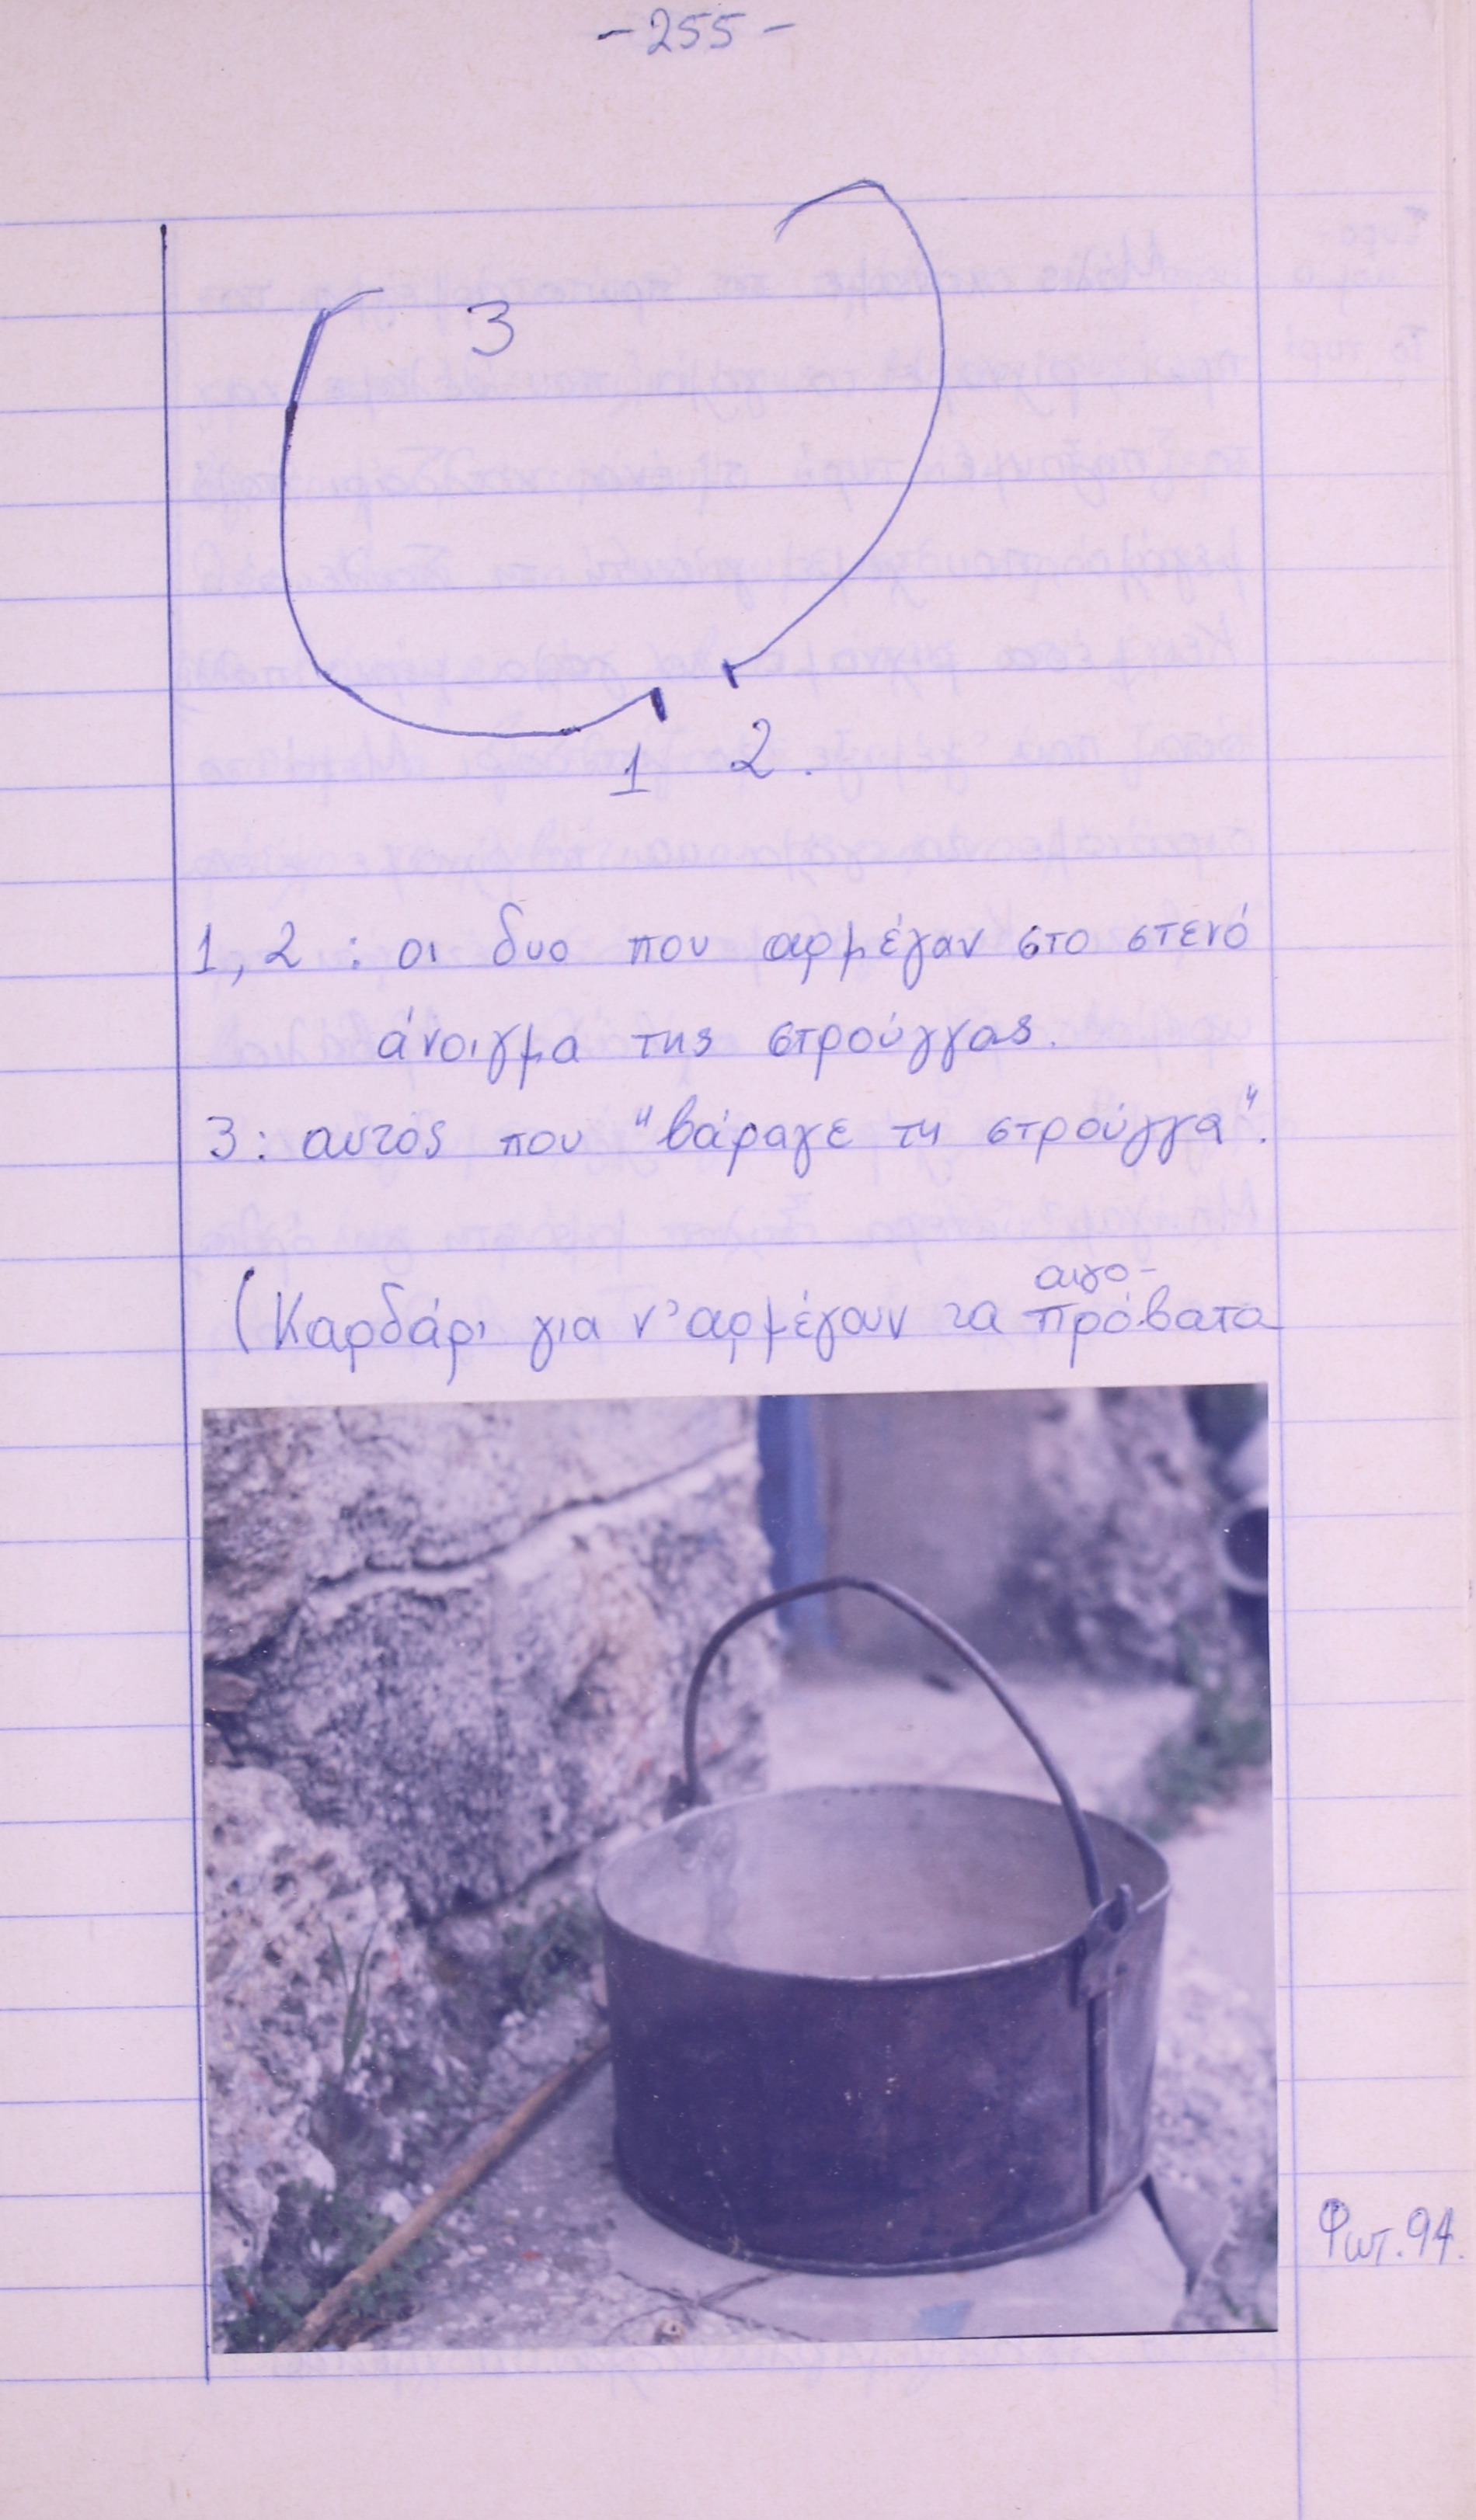 -255-
3
1 2.
1, 2 : οι δυο που αρμέγαν στο στενό
άνοιγμα της στρούγγας.
3: αυτός που "βάραγε τη στρούγγα".
αιγο-
(Καρδάρι για ν'αρμέγουν τα πρόβατα
Φωτ. 94.